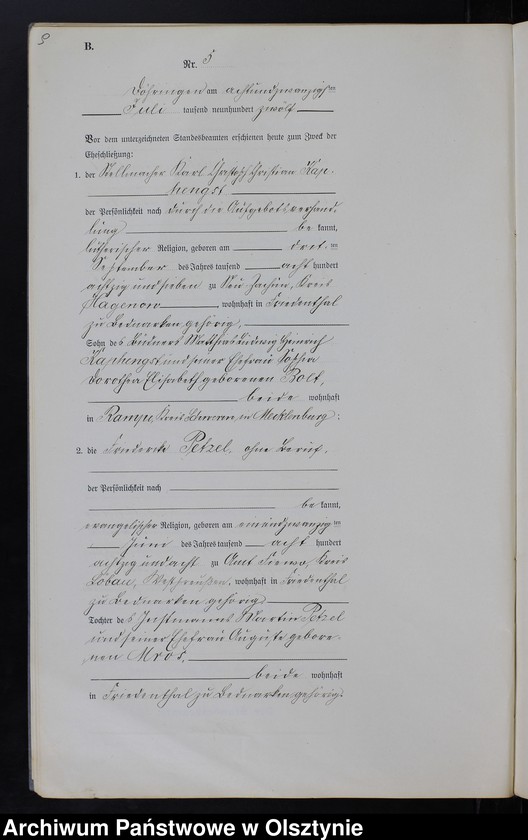 9
B.
Nr. 5
Döhringen am achtundzwanzigsten
Juli tausend neunhundert zwölf
Vor dem unterzeichneten Standesbeamten erschienen heute zum Zweck der
Eheschließung:
1. der Stellmacher Karl Christian Kap-
hengst
der Persönlichkeit nach durch die Aufgebotsverhand-
lung be kannt,
lutherischer Religion, geboren am drit ten
September des Jahres tausend acht hundert
achtzig und sieben zu Neu Zachun, Kreis
Hagenow, wohnhaft in Friedenthal
zu Bednarken gehörig,
Sohn des Büdners Matthias Ludwig Heinrich
Kaphengst und seiner Ehefrau Sophia
Dorothea Elisabeth geborenen Bolt,
beide wohnhaft
in Rampe, Kreis Schwerin in Mecklenburg;
2. die Friederike Petzel, ohne Beruf,
der Persönlichkeit nach
be kannt,
evangelischer Religion, geboren am einundzwanzig ten
Juni des Jahres tausend acht hundert
achtzig und acht zu Amt Kreis
Löbau, Westpreußen, wohnhaft in Friedenthal
zu Bednarken gehörig
Tochter des Instmanns Martin Petzel
und seiner Ehefrau Auguste gebore-
nen Mros,
beide wohnhaft
in Friedenthal zu Bednarken gehörig.
Archiwum Państwowe w Olsztynie